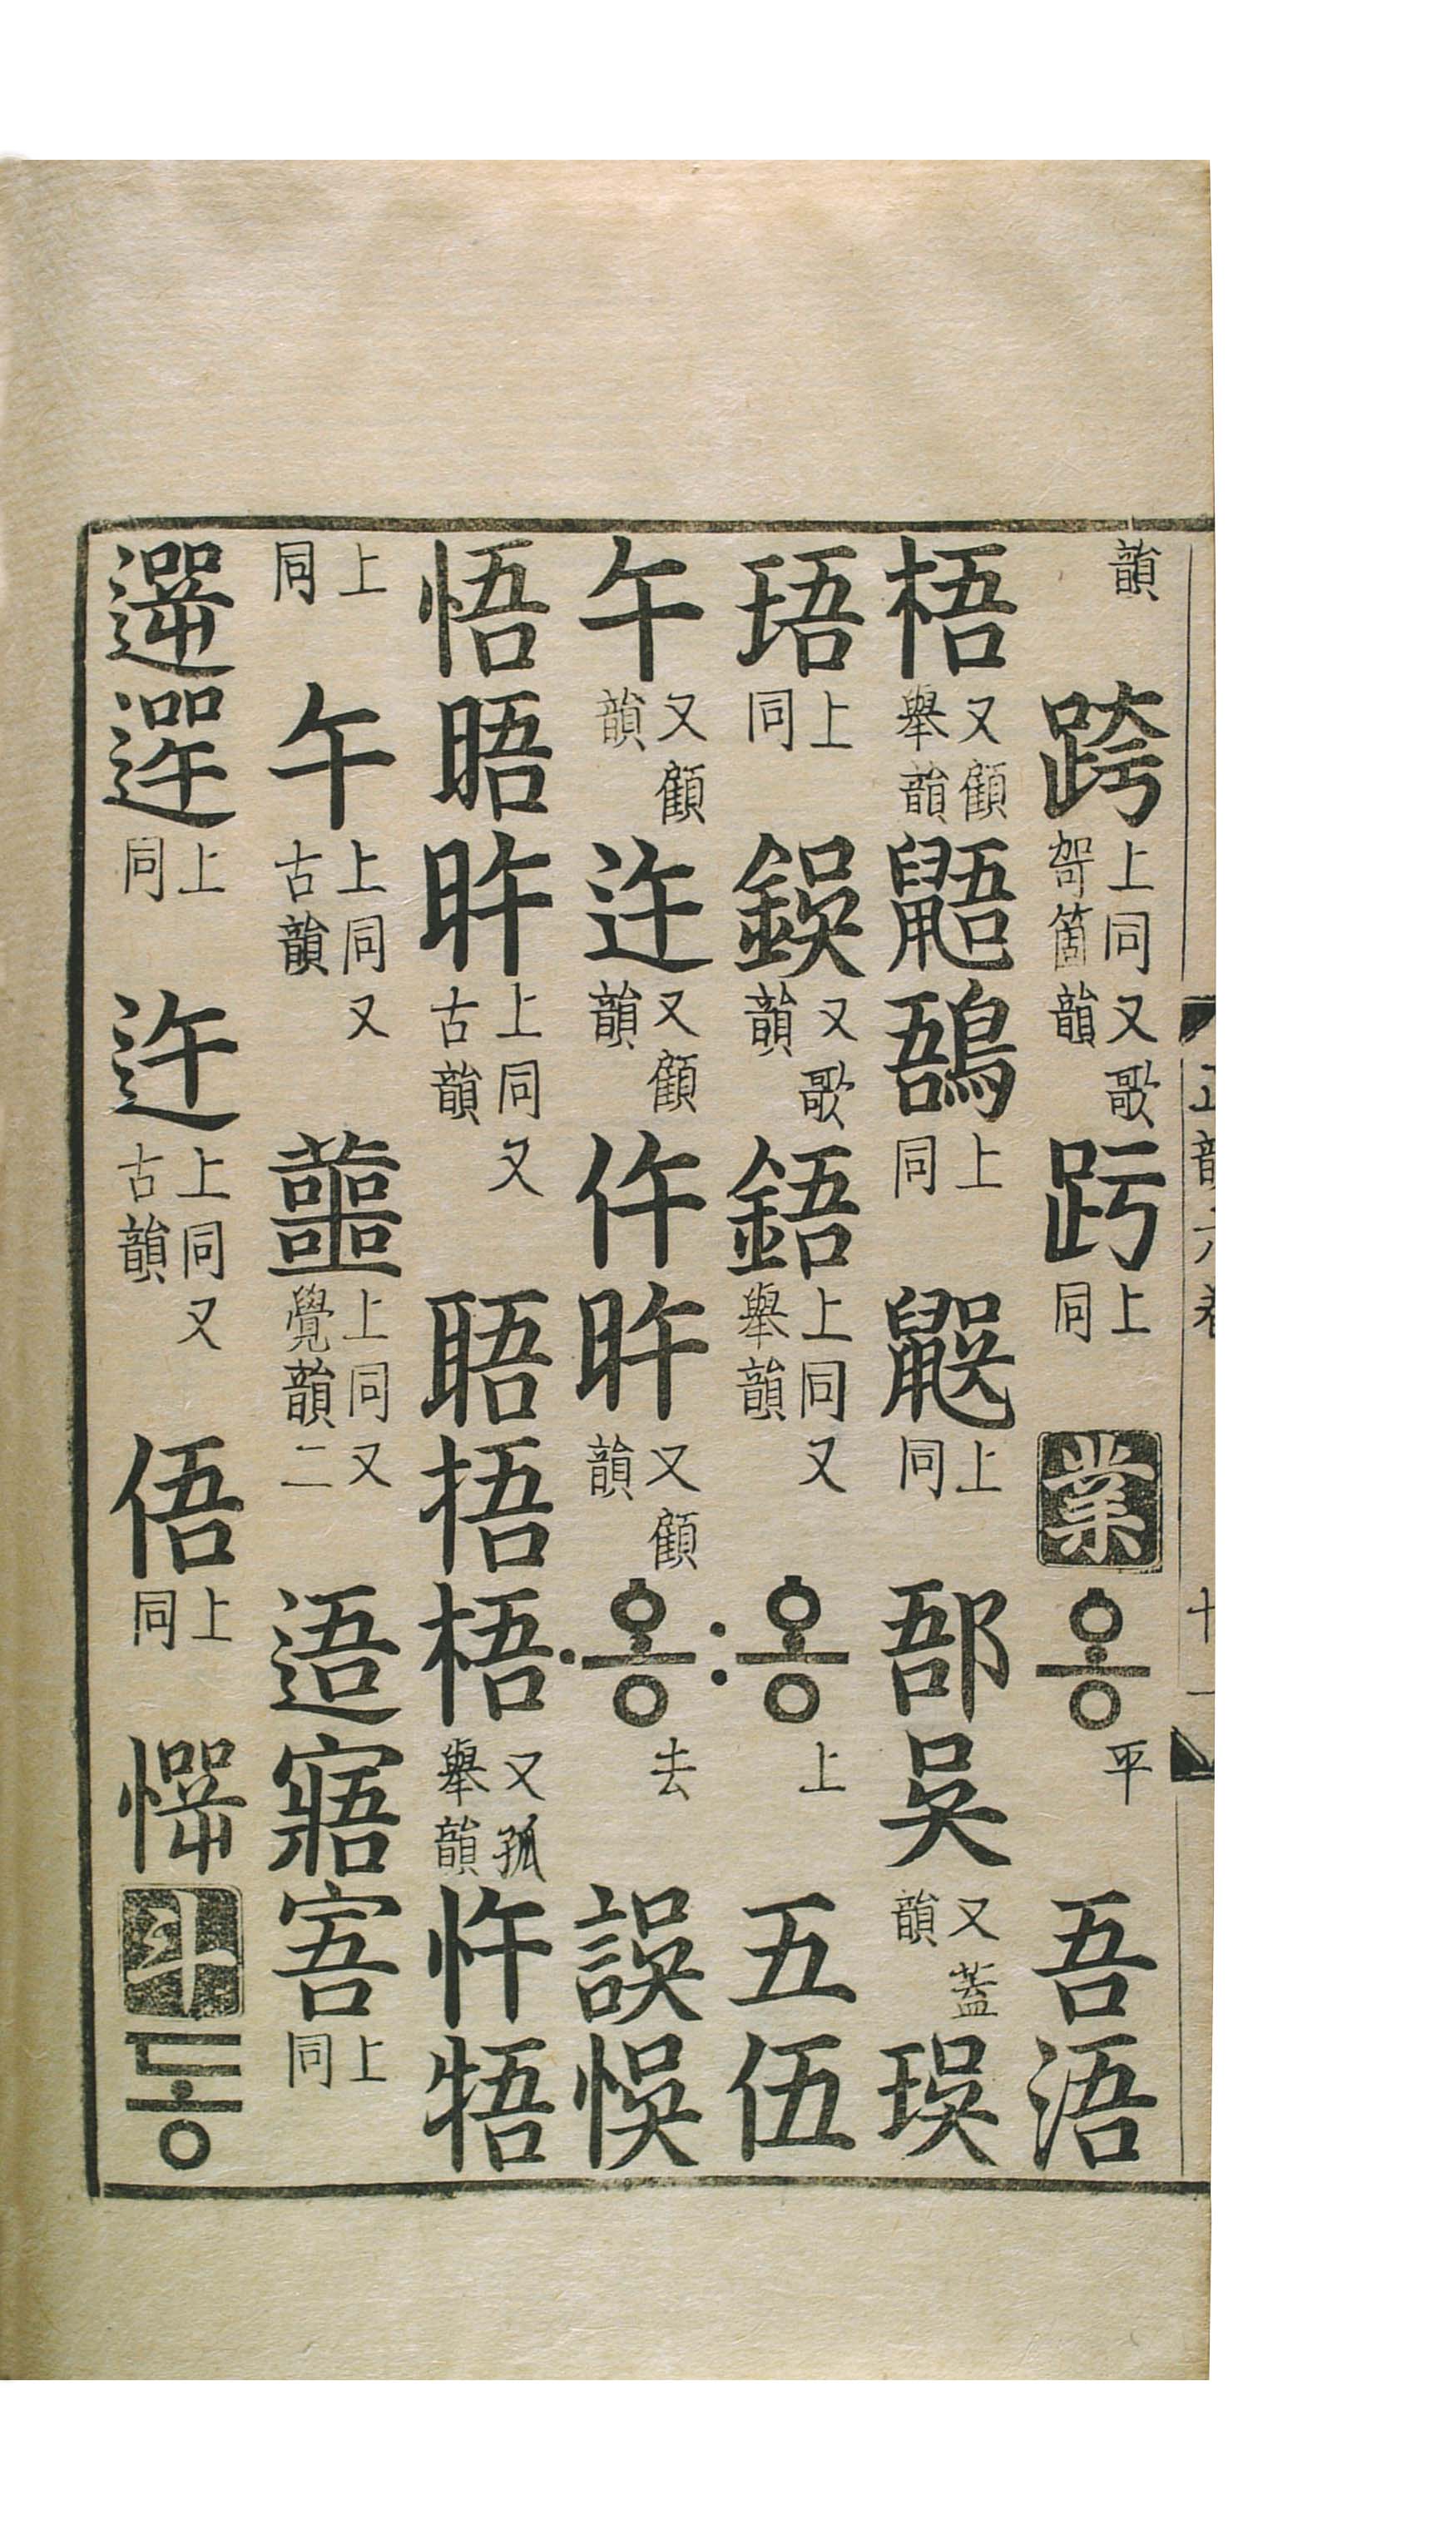 正韻六卷 十一
韻 跨 上同又歌哿箇韻 上同 業 ᅌᅩᆼ 平 吾 浯
梧 又顧舉韻 鼯 上同 上同 郚 吳 又蓋韻 珸
珸 上同 鋘 又歌韻 鋙 上同又舉韻 〯ᅌᅩᆼ 上 五 伍
午 又顧韻 迕 又顧韻 仵 旿 又顧韻 〮ᅌᅩᆼ 去 誤 悞
悟 晤 旿 上同又古韻 捂 梧 又孤舉韻 忤 牾
上同 午 上同又古韻 蘁 上同又覺韻二 逜 寤 上同
遻 上同 迕 上同又古韻 俉 上同 斗 똥